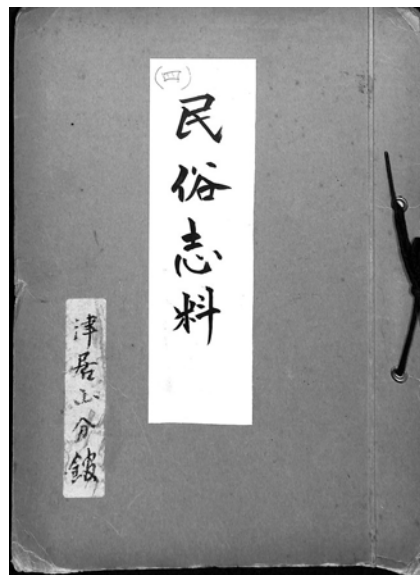 (四)
民俗志料
津居山分